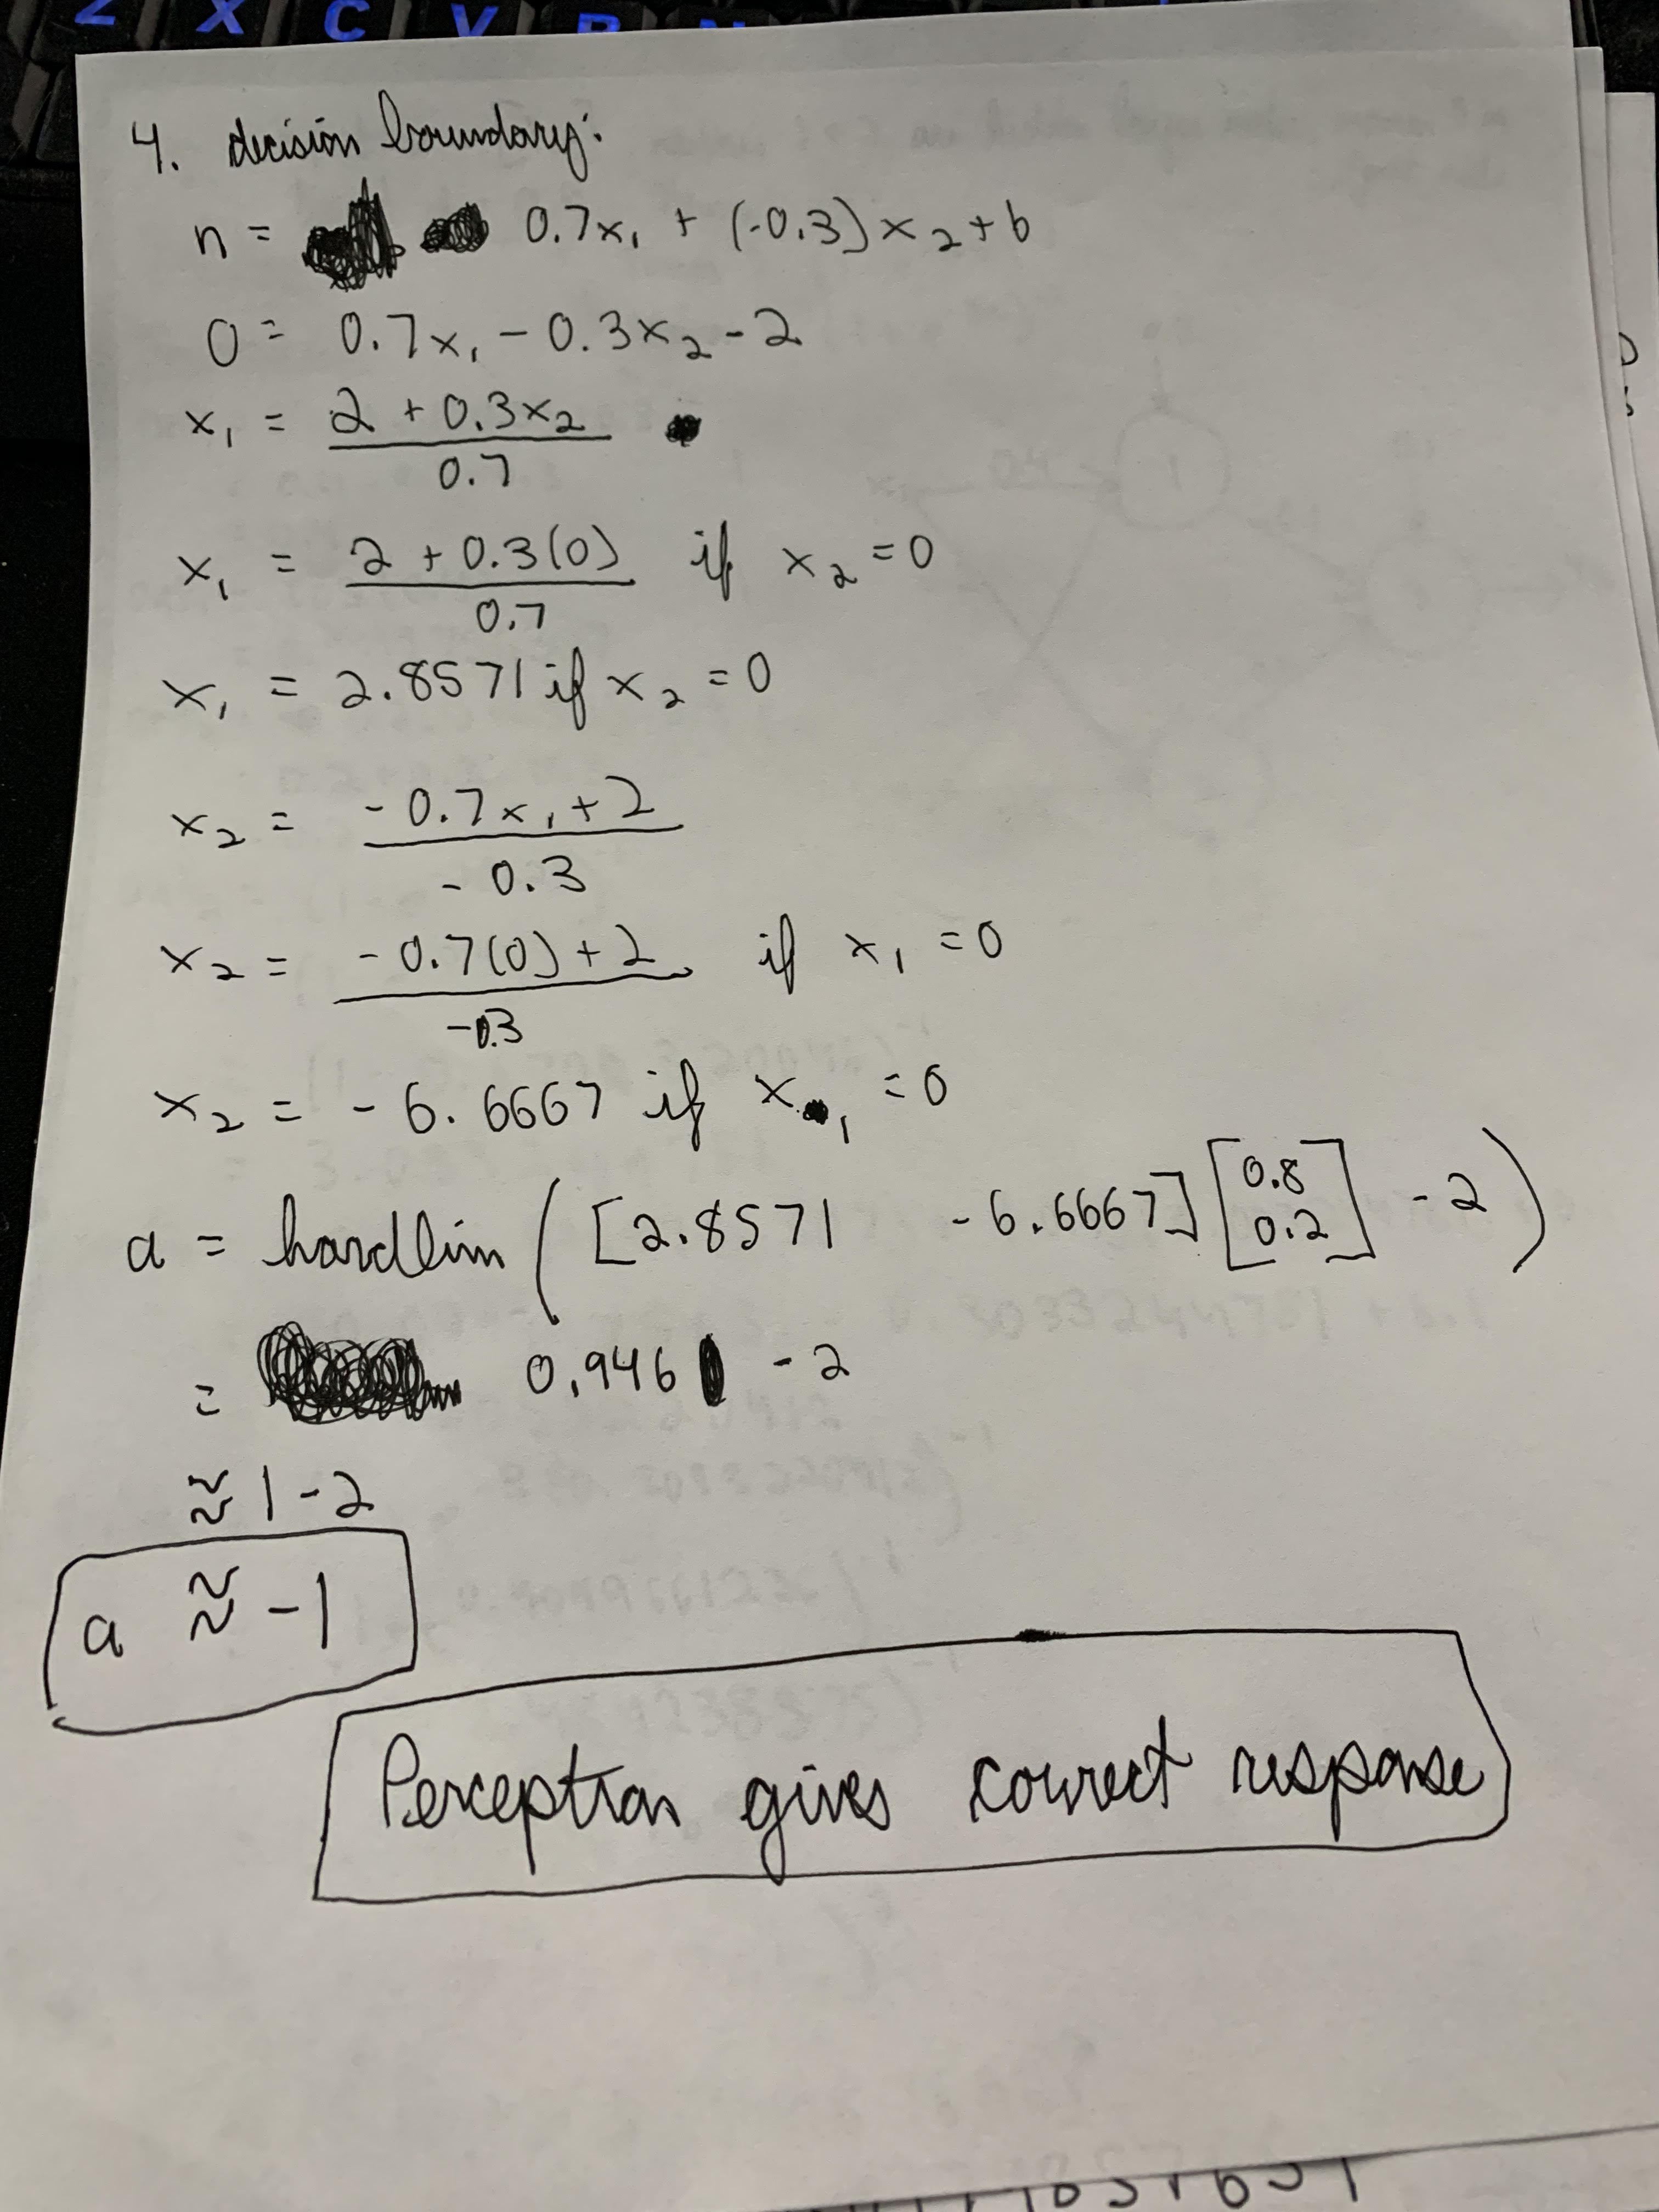 Z X C V B N
4. decision boundary:
n = 0.7x₁ + (-0.3)x₂ + b
0 = 0.7x₁ - 0.3x₂ - 2
x₁ = (2 + 0.3x₂) / 0.7
x₁ = (2 + 0.3(0)) / 0.7 if x₂ = 0
x₁ = 2.8571 if x₂ = 0
x₂ = (-0.7x₁ + 2) / -0.3
x₂ = (-0.7(0) + 2) / -0.3 if x₁ = 0
x₂ = -6.6667 if x₁ = 0
a = hardlim ([2.8571 -6.6667] [0.8 0.2] - 2)
= 0.946 - 2
≈ 1 - 2
a ≈ -1
Perceptron gives correct response